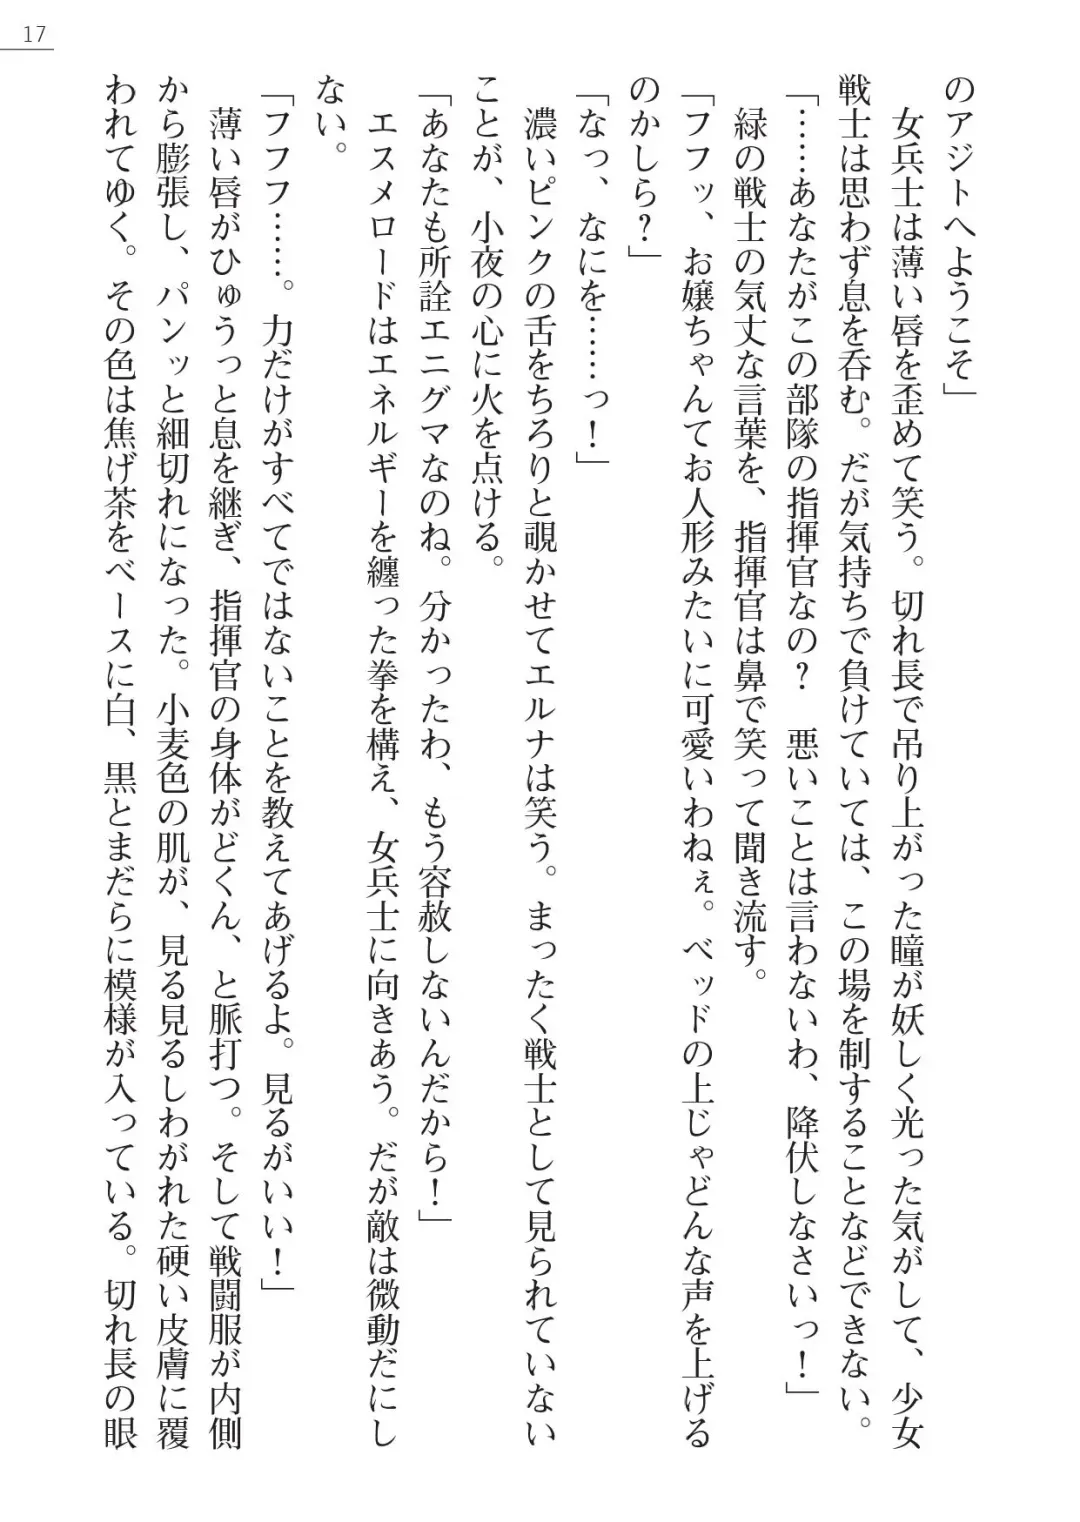 17
のアジトへようこそ」
　女兵士は薄い唇を歪めて笑う。切れ長で吊り上がった瞳が妖しく光った気がして、少女
戦士は思わず息を呑む。だが気持ちで負けていては、この場を制することなどできない。
「……あなたがこの部隊の指揮官なの？　悪いことは言わないわ、降伏しなさいっ！」
　緑の戦士の気丈な言葉を、指揮官は鼻で笑って聞き流す。
「フフッ、お嬢ちゃんてお人形みたいに可愛いわねぇ。ベッドの上じゃどんな声を上げる
のかしら？」
「なっ、なにを……っ！」
　濃いピンクの舌をちろりと覗かせてエルナは笑う。まったく戦士として見られていない
ことが、小夜の心に火を点ける。
「あなたも所詮エニグマなのね。分かったわ、もう容赦しないんだから！」
　エスメロードはエネルギーを纏った拳を構え、女兵士に向きあう。だが敵は微動だにし
ない。
「フフフ……。力だけがすべてではないことを教えてあげるよ。見るがいい！」
　薄い唇がひゅうっと息を継ぎ、指揮官の身体がどくん、と脈打つ。そして戦闘服が内側
から膨張し、パンッと細切れになった。小麦色の肌が、見る見るしわがれた硬い皮膚に覆
われてゆく。その色は焦げ茶をベースに白、黒とまだらに模様が入っている。切れ長の眼